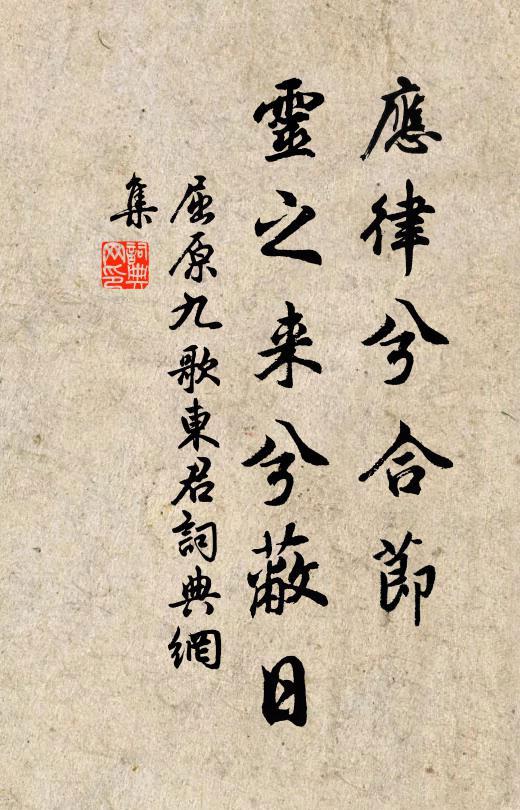 應律兮合節
靈之来兮蔽日
屈原九歌東君詞典網
集
詞典网印